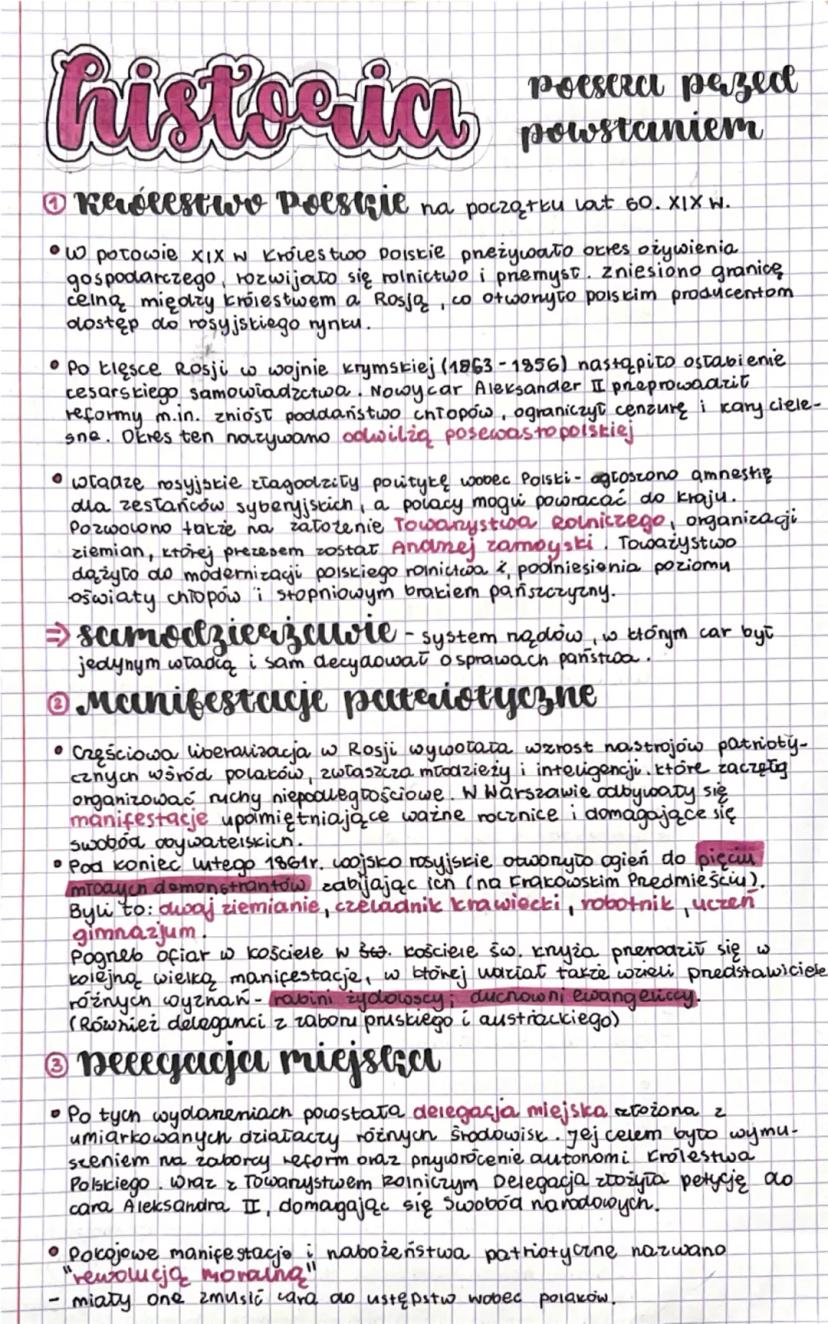 historia
Polska przed
powstaniem
① Królestwo Polskie na początku lat 60. XIX w.
• W połowie XIX w Królestwo Polskie przeżywało okres ożywienia
gospodarczego, rozwijało się rolnictwo i przemysł. Zniesiono granicę
celną między królestwem a Rosją, co otworzyło polskim producentom
dostęp do rosyjskiego rynku.
• Po klęsce Rosji w wojnie krymskiej (1863-1856) nastąpiło osłabienie
cesarskiego samowładztwa. Nowy car Aleksander II przeprowadził
reformy m.in. zniósł poddaństwo chłopów, ograniczył cenzurę i kary ciele-
sne. Okres ten nazywano odwilżą posewastopolskiej
• Władze rosyjskie złagodziły politykę wobec Polski - ogłoszono amnestię
dla zesłańców syberyjskich, a polacy mogli powracać do kraju.
Pozwolono także na założenie Towarzystwa Rolniczego, organizacji
ziemian, której prezesem został Andrzej Zamoyski. Toważystwo
dążyło do modernizacji polskiego rolnictwa z, podniesienia poziomu
oświaty chłopów i stopniowym brakiem pańszczyzny.
⇒ samodzierżawie - system rządów, w którym car był
jedynym władcą i sam decydował o sprawach państwa.
② Manifestacje patriotyczne
• Częściowa liberalizacja w Rosji wywołała wzrost nastrojów patrioty-
cznych wśród polaków, zwłaszcza młodzieży i inteligencji. które zaczęłg
organizować ruchy niepodległościowe. W Warszawie odbywały się
manifestacje upamiętniające ważne rocznice i domagające się
swobód obywatelskich.
• Pod koniec lutego 1861r. wojsko rosyjskie otworzyło ogień do pięciu
młodych demonstrantów zabijając ich (na Krakowskim Przedmieściu).
Byli to: dwaj ziemianie, czeladnik krawiecki, robotnik, uczeń
gimnazjum.
Pogrzeb ofiar w kościele w św. kościele św. Krzyża przerodził się w
kolejną wielką manifestację, w której udział także wzieli przedstawiciele
różnych wyznań - rabini żydowscy; duchowni ewangeliccy.
(Również deleganci z zaboru pruskiego i austriackiego)
③ Delegacja miejska
• Po tych wydarzeniach powstała delegacja miejska złożona z
umiarkowanych działaczy różnych środowisk. Jej celem było wymu-
szeniem na zaborcy reform oraz przywrócenie autonomi Królestwa
Polskiego. Wraz z Towarzystwem Rolniczym Delegacja złożyła petycję do
cara Aleksandra II, domagając się Swobód narodowych.
• Pokojowe manifestacje i nabożeństwa patriotyczne nazwano
"rewolucją moralną"
- miały one zmusić cara do ustępstw wobec polaków.